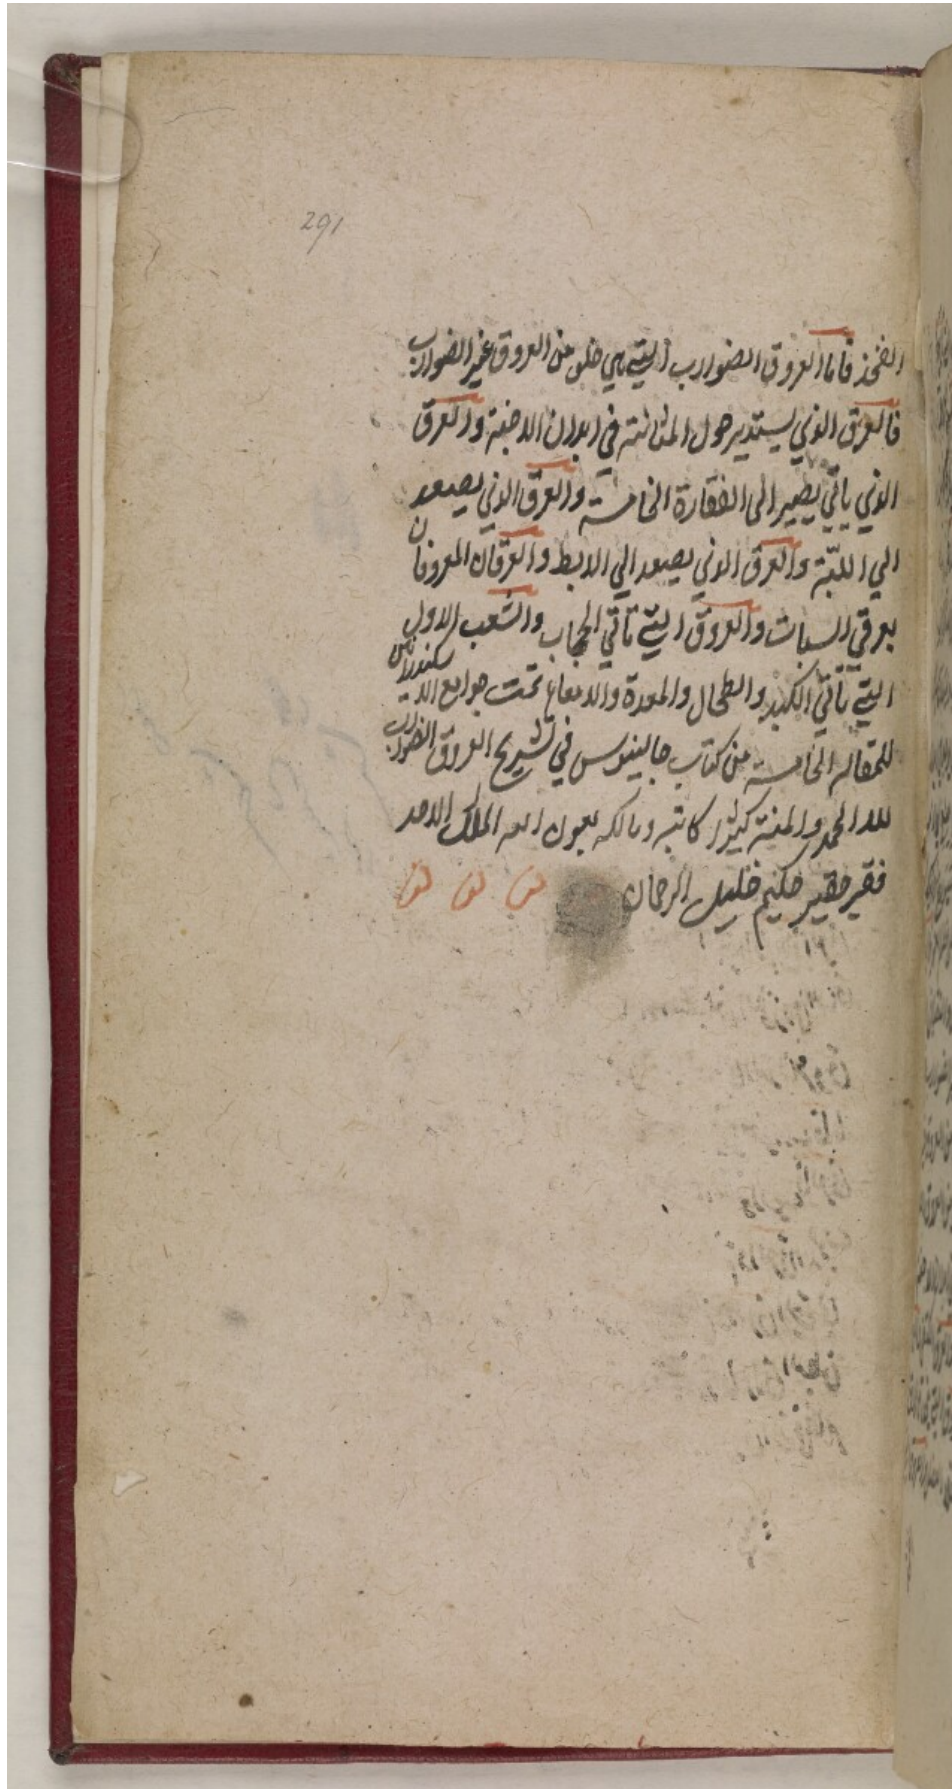 291
الفخذ فاما العروق الضوارب التي هي خلو من العروق غير الضوارب
فالعرق الذي يستدير حول المثانة في ابدان الاجنة والعرق
الذي ياتي يصير الى الفقارة الخامسة والعرق الذي يصعد
الي اللبة والعرق الذي يصعد الي الابط والعرقان المعروفان
بعرقي السبات والعروق التي تاتي الحجاب والشعب الاول
التي تاتي الكبد والطحال والمعدة والامعاء تمت جوامع الاسكندرانيين
للمقالة الخامسة من كتاب جالينوس في تشريح العروق الضوارب
لله الحمد والمنة كثيرا كاتبه ومالكه بعون الله الملك الاحد
فقير حقير حكيم خليل الرحمان